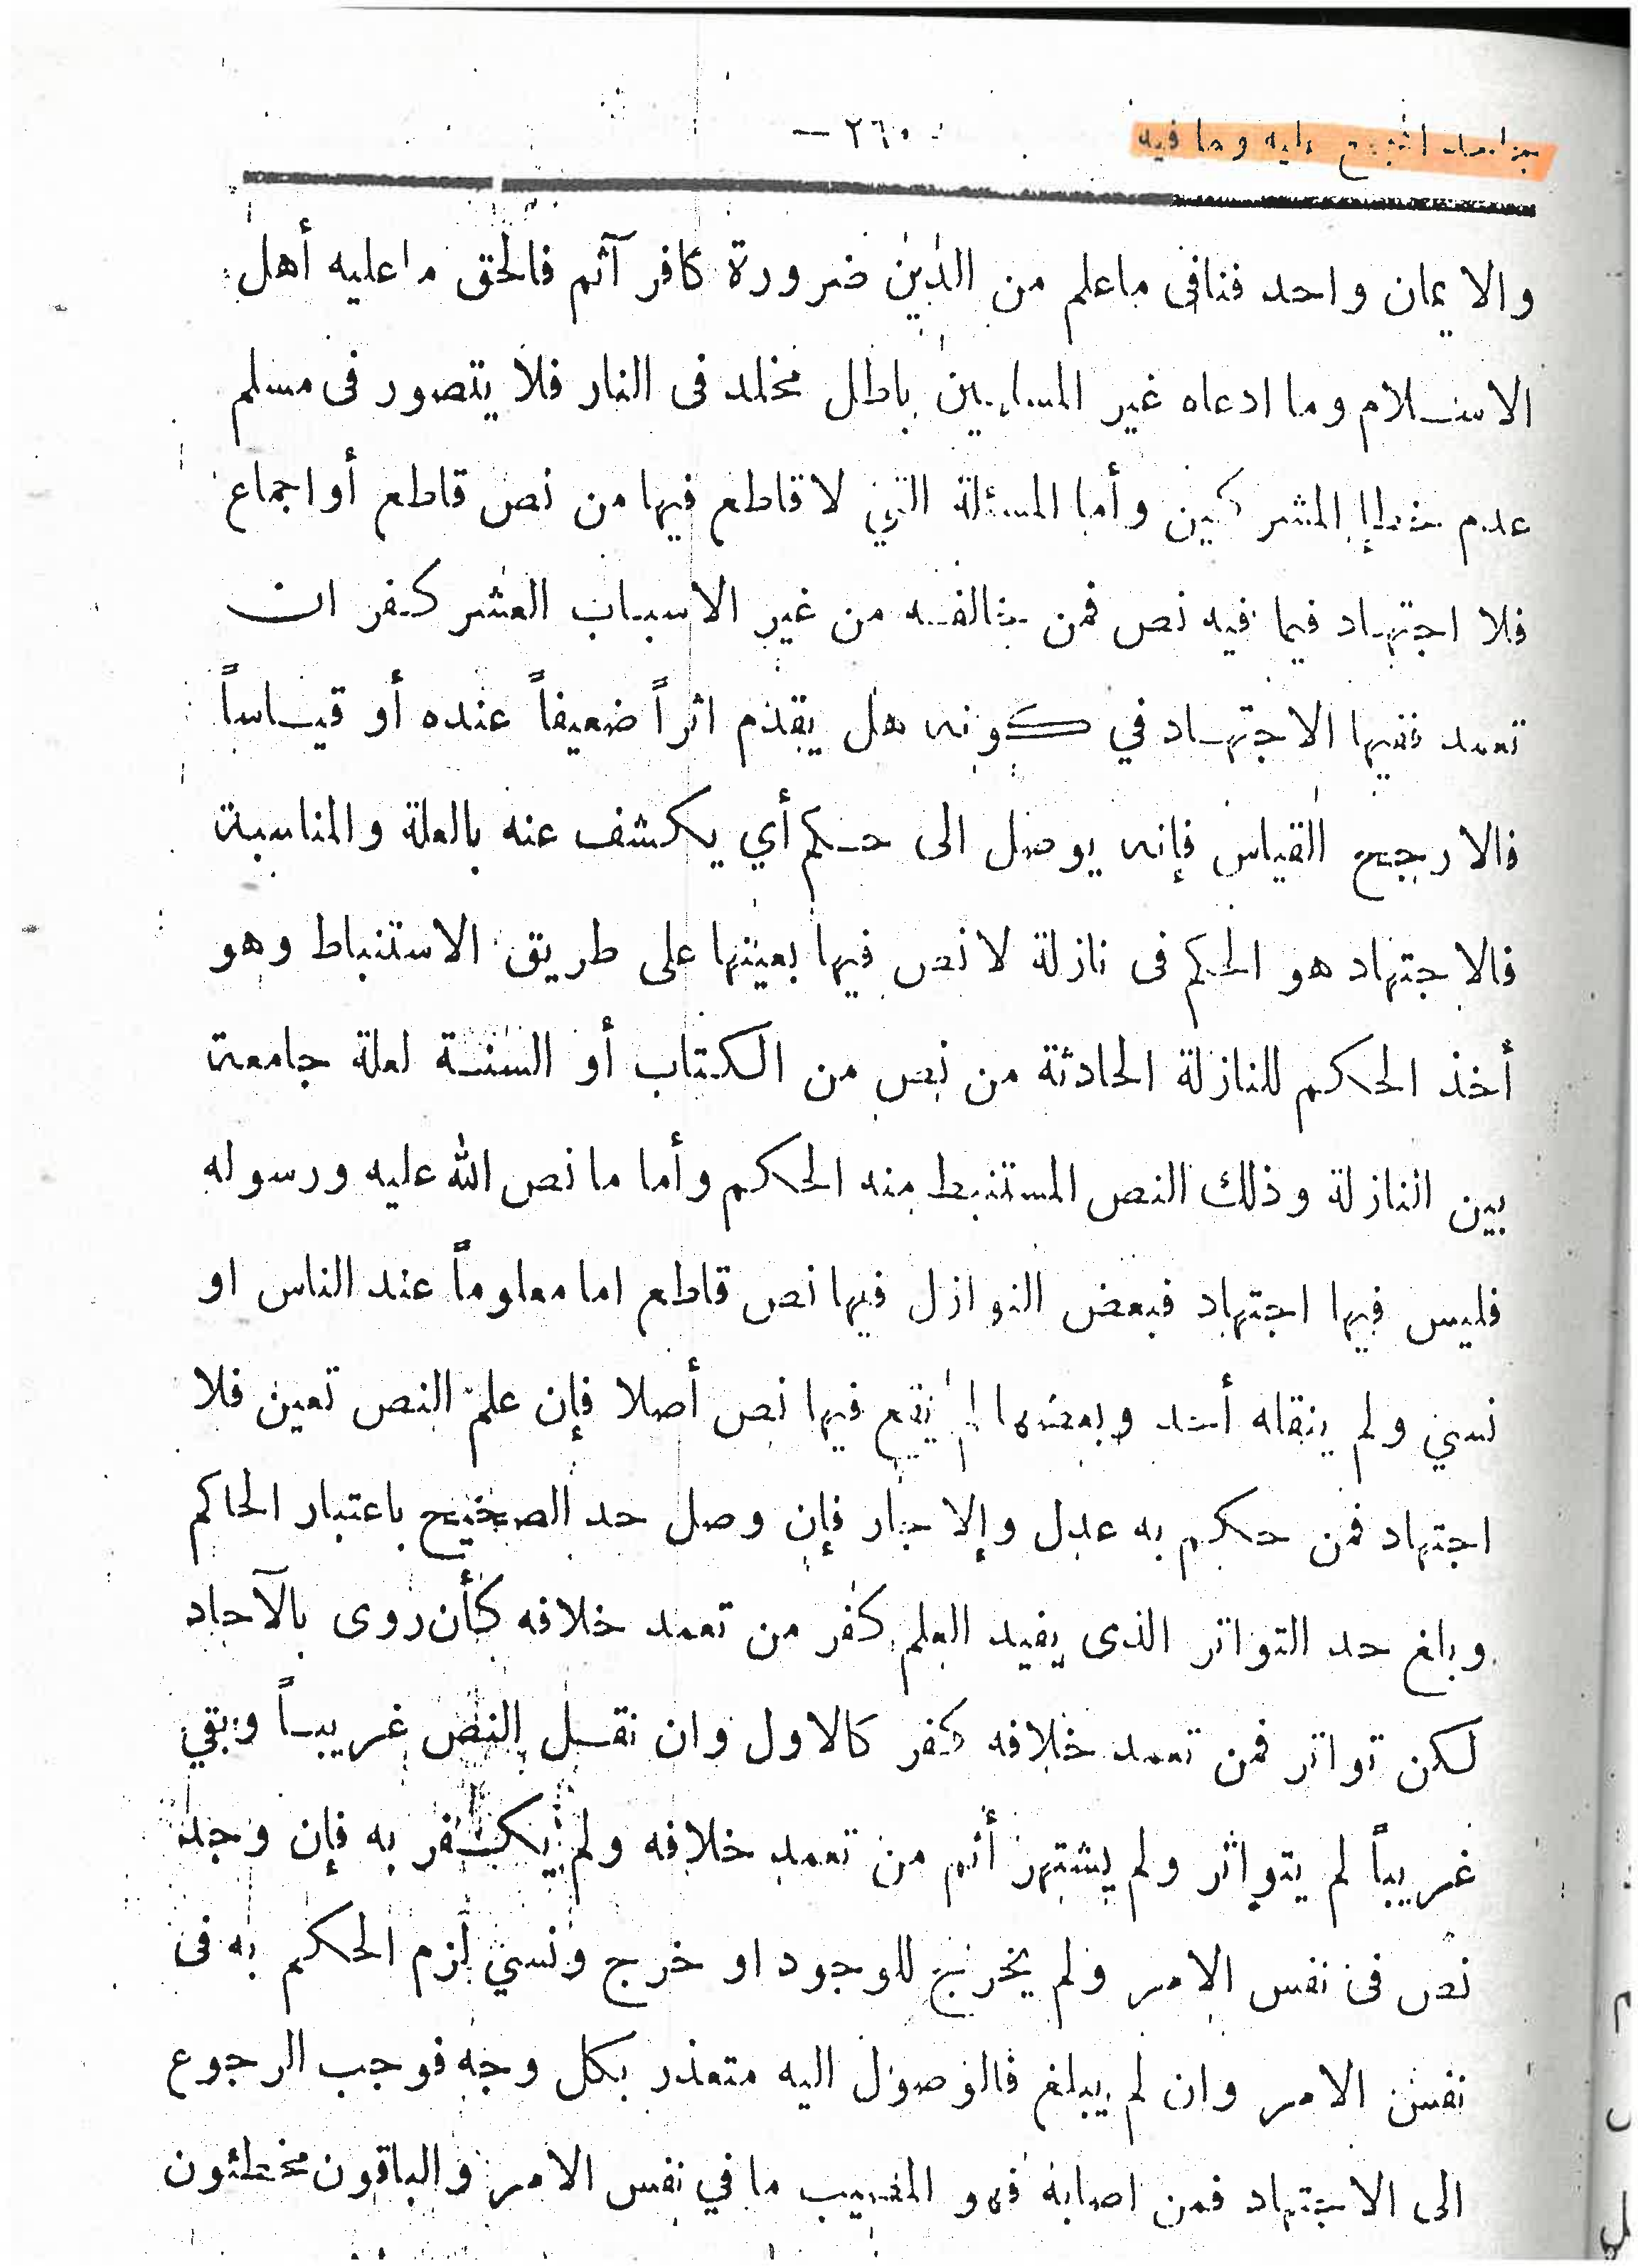 — ٢٦٠ عليه وما فيه
والايمان واحد فنافى ماعلم من الدين ضرورة كافر آثم فالحق ماعليه أهل
الاسلام وما ادعاه غير المسلمين باطل مخلد فى النار فلا يتصور فى مسلم
عدم خطإ المشركين وأما المسئلة التي لا قاطع فيها من نص قاطع أو اجماع
فلا اجتهاد فيما فيه نص فمن خالفه من غير الاسباب العشر كفر ان
تعمد ففيها الاجتهاد في كونه هل يقدم اثراً ضعيفاً عنده أو قياساً
فالارجح القياس فإنه يوصل الى حكم أي يكشف عنه بالعلة والمناسبة
فالاجتهاد هو الحكم فى نازلة لا نص فيها بعينها على طريق الاستنباط وهو
أخذ الحكم للنازلة الحادثة من نص من الكتاب أو السنة لعلة جامعة
بين النازلة وذلك النص المستنبط منه الحكم وأما ما نص الله عليه ورسوله
فليس فيها اجتهاد فبعض النوازل فيها نص قاطع اما معلوماً عند الناس او
نسي ولم ينقله أحد وبعضها لم يقع فيها نص أصلا فإن علم النص تعين فلا
اجتهاد فمن حكم به عدل وإلا جار فإن وصل حد الصحيح باعتبار الحاكم
وبلغ حد التواتر الذى يفيد العلم كفر من تعمد خلافه كأن روى بالآحاد
لكن تواتر فمن تعمد خلافه كفر كالاول وان نقل النص غريباً وبقي
غريباً لم يتواتر ولم يشتهر أثم من تعمد خلافه ولم يكفر به فإن وجد
نص فى نفس الامر ولم يخرج للوجود او خرج ونسي لزم الحكم به فى
نفس الامر وان لم يبلغ فالوصول اليه متعذر بكل وجه فوجب الرجوع
الى الاجتهاد فمن اصابه فهو المصيب ما في نفس الامر والباقون مخطئون